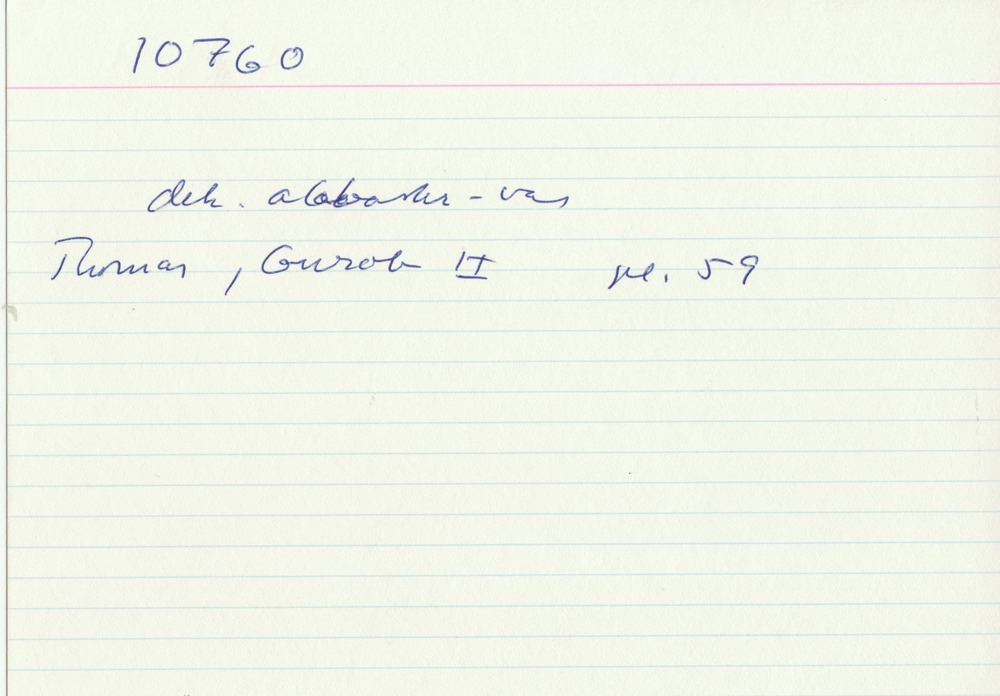 10760
dek. alabaster-vas
Thomas, Gurob II pl. 59